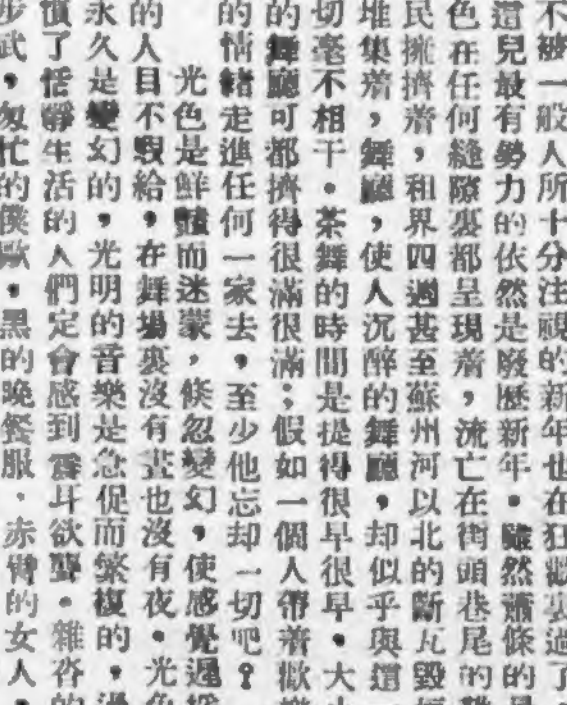 不被一般人所十分注視的新年也在狂歡裏過了
這兒最有勢力的依然是廢歷新年。雖然蕭條的
色在任何縫隙裏都呈現着，流亡在街頭巷尾的難
民擁擠着，和界四週甚至蘇州河以北的斷瓦毀垣
堆集着，舞廳，使人沉醉的舞廳，却似乎與這
切毫不相干。茶舞的時間是提得很早很早。大
的舞廳可都擠得很滿很滿；假如一個人帶着歡樂
的情緒走進任何一家去，至少他忘却一切吧？
光色是鮮豔而迷蒙，倏忽變幻，使感覺遲
的人目不暇給，在舞場裏沒有晝也沒有夜。光色
永久是變幻的，光明的音樂是急促而繁複的，過
慣了恬靜生活的人們定會感到震耳欲聾。雜沓的
步武，匆忙的僕歐，黑的晚餐服，赤臂的女人，